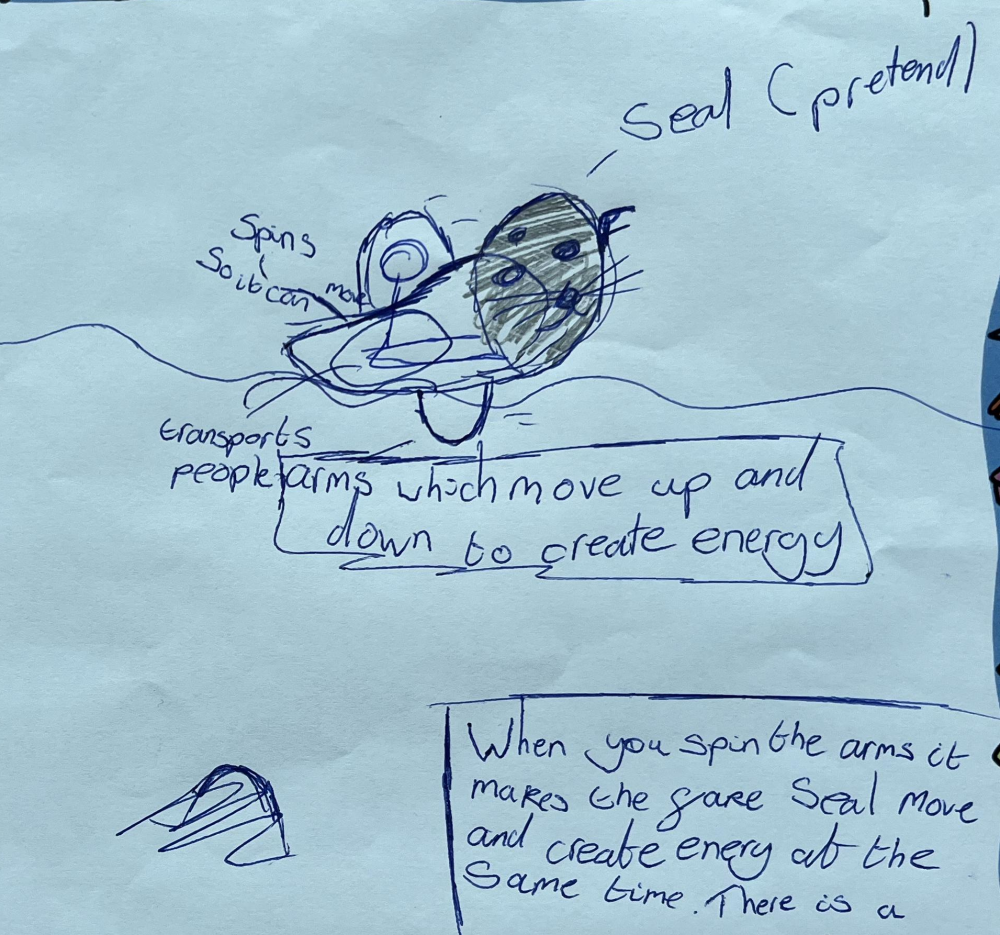 Seal (pretend)
Spins
So it can move
transports
people
arms which move up and
down to create energy
When you spin the arms it
makes the fake Seal move
and create enery at the
Same time. There is a